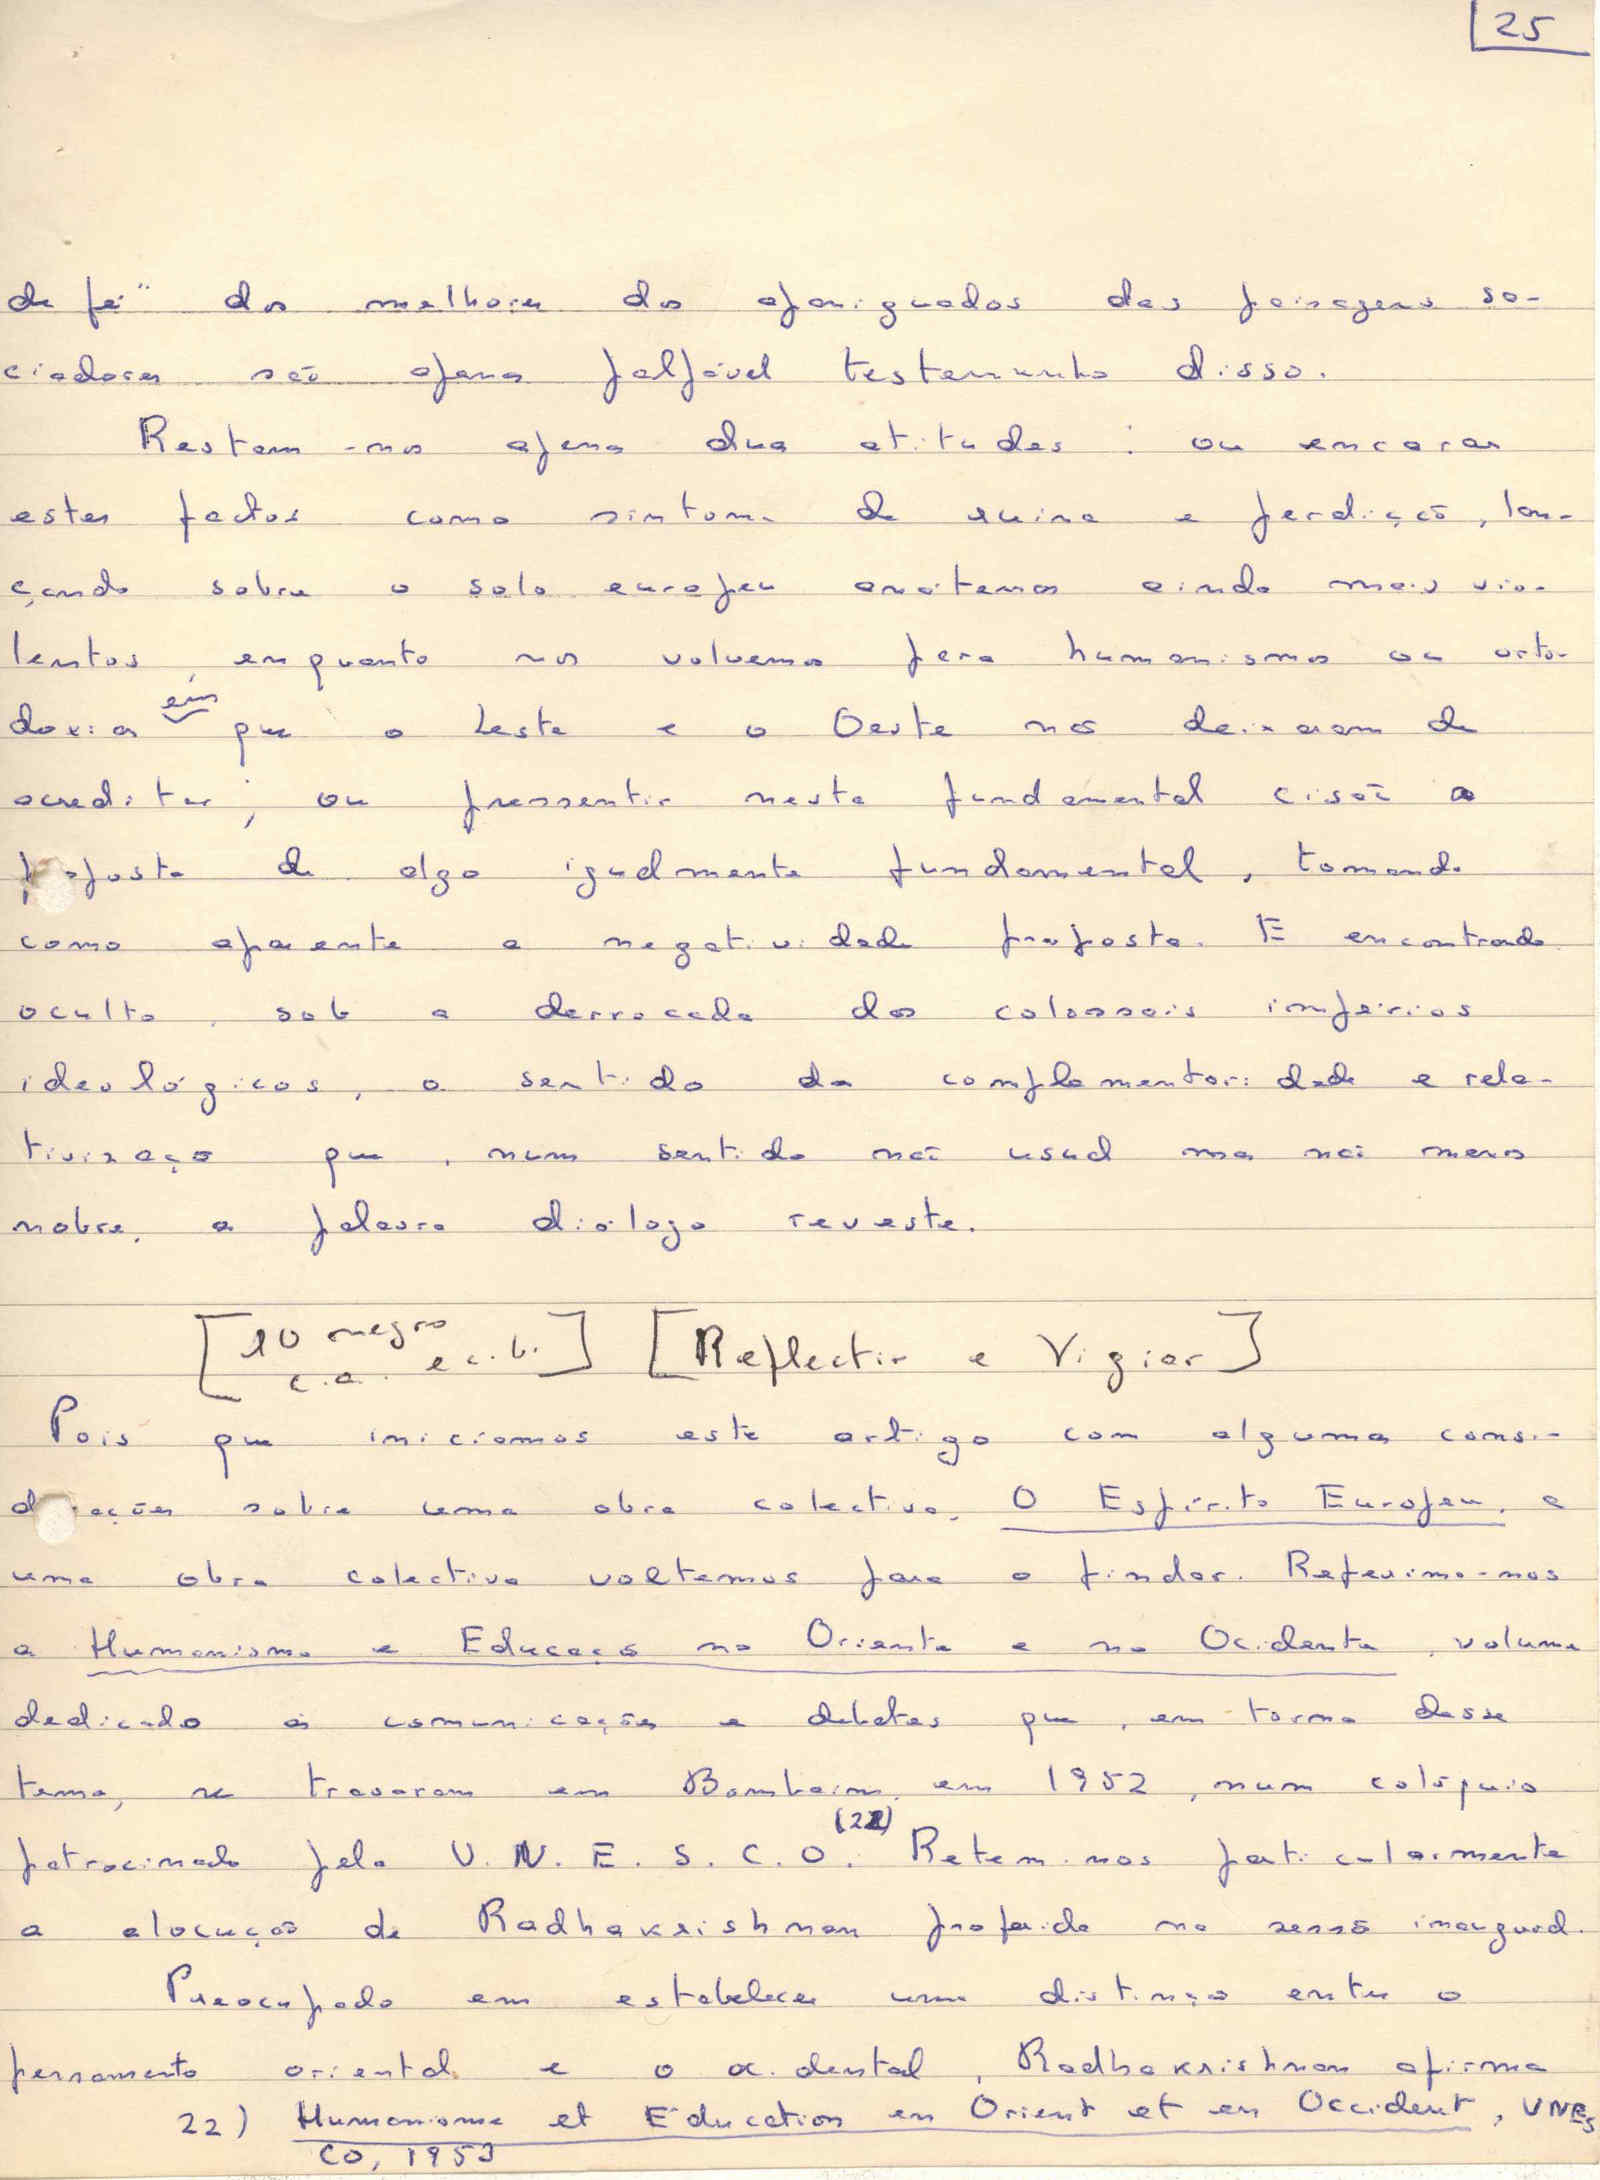 25
de fé" dos melhores dos apaniguados das paisagens so-
ciadoras são apenas palpável testemunho disso.
Restam-nos apenas duas atitudes: ou encarar
estes factos como sintoma de ruína e perdição, lan-
çando sobre o solo europeu anátemas ainda mais vio-
lentos, enquanto nos volvemos para humanismos ou orto-
doxias em que o Leste e o Oeste nos deixaram de
acreditar; ou pressentir nesta fundamental cisão a
proposta de algo igualmente fundamental, tomando
como aparente a negatividade proposta. E encontrado
oculto, sob a derrocada dos colossais impérios
ideológicos, o sentido da complementaridade e rela-
tivização que, num sentido não usual mas não menos
nobre, a palavra diálogo reveste.
[10 negro c.a. e c.b.] [Reflectir e Vigiar]
Pois que iniciamos este artigo com algumas consi-
derações sobre uma obra colectiva, O Espírito Europeu, a
uma obra colectiva voltemos para o findar. Referimo-nos
a Humanismo e Educação no Oriente e no Ocidente, volume
dedicado às comunicações e debates que, em torno desse
tema, se travaram em Bombaim, em 1952, num colóquio
patrocinado pela U.N.E.S.C.O. (22) Retem-nos particularmente
a alocução de Radhakrishnan proferida na sessão inaugural.
Preocupado em estabelecer uma distinção entre o
pensamento oriental e o ocidental, Radhakrishnan afirma
22) Humanisme et Education en Orient et en Occident, UNES
CO, 1953